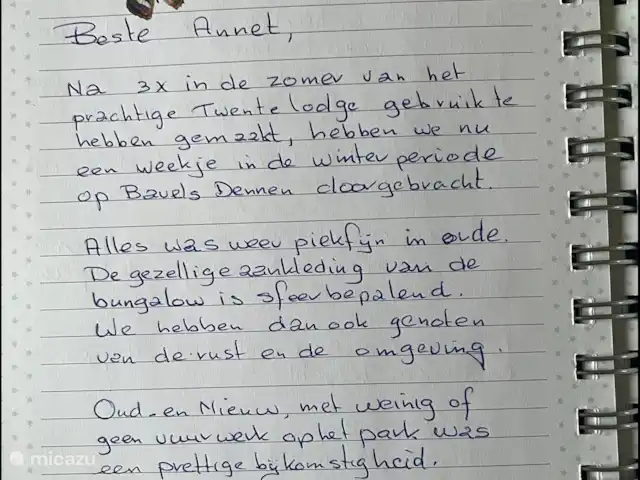 Beste Annet,
Na 3x in de zomer van het
prachtige Twente lodge gebruik te
hebben gemaakt, hebben we nu
een weekje in de winter periode
op Bavels Dennen doorgebracht.
Alles was weer piekfijn in orde.
De gezellige aankleding van de
bungalow is sfeerbepalend.
We hebben dan ook genoten
van de rust en de omgeving.
Oud-en Nieuw, met weinig of
geen vuurwerk op het park was
een prettige bijkomstigheid.
micazu